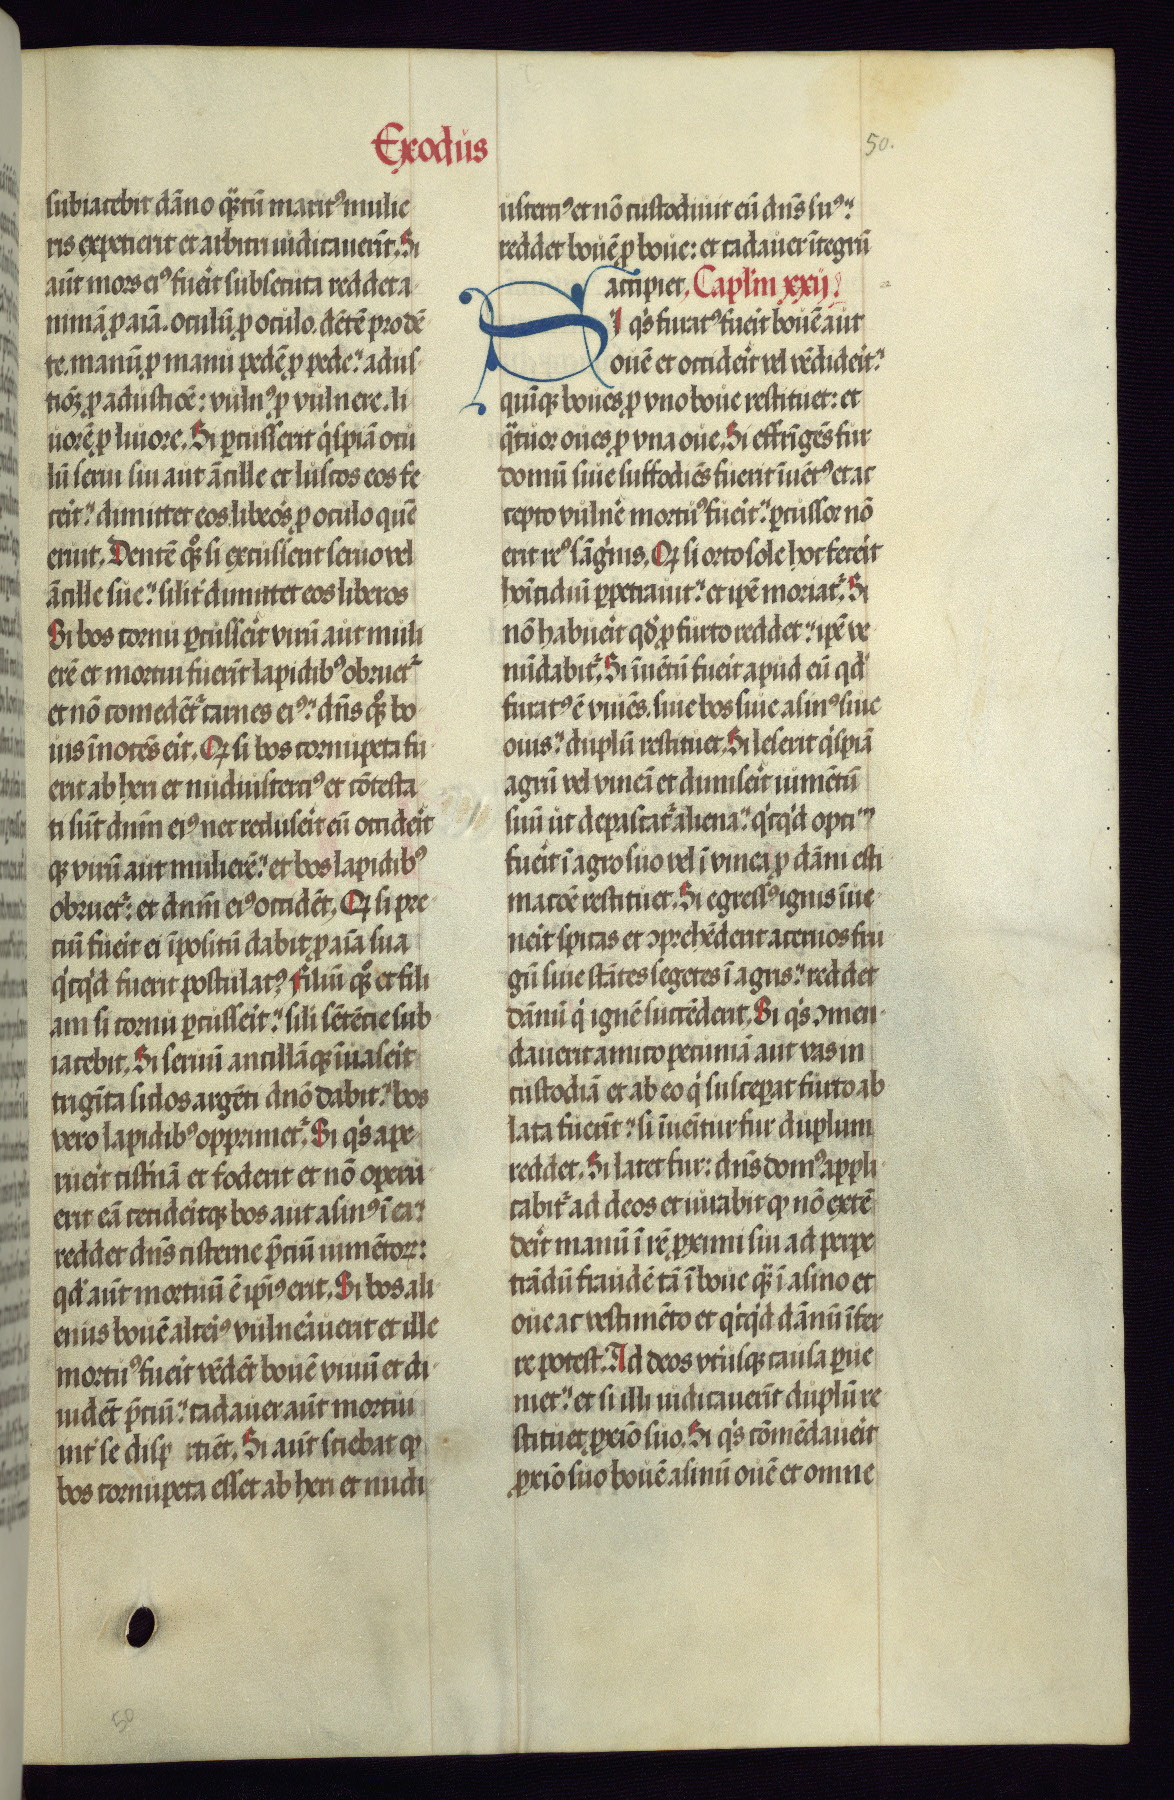 Exodus
50.
subiacebit dāno q̄ntū marit⁹ mulie
ris expetierit et arbitri iudicauerīt. Si
aūt mors ei⁹ fuerit subsecuta reddet a
nimā ꝓ aīa. oculū ꝓ oculo. dētē pro dē
te. manū ꝓ manu pedē ꝓ pede. adus
tiōꝫ ꝓ adustiōe: vuln⁹ ꝓ vulnere. li
uorē ꝓ liuore. Si ꝑcusserit q̇spiā ocu
lū serui sui aut ācille et luscos eos fe
cerit. dimittet eos lib̄os ꝓ oculo quē
eruit. Dentē qͦꝫ si excusserit seruo vel
ācille sue. silīt dimittet eos liberos
Si bos cornu ꝑcusserit virū aut muli
erē et mortui fuerīt lapidib⁹ obruet̄
et nō comedēt̄ carnes ei⁹. dn̄s qͦꝫ bo
uis īnocēs erit. Ꝙ si bos cornupeta fu
erit ab heri et nudiusterci⁹ et cōtesta
ti sūt dnm̄ ei⁹ nec recluserit eū occiderit
qꝫ virū aut mulierē. et bos lapidib⁹
obruet̄: et dnm̄ ei⁹ occidēt. Ꝙ si pre
ciū fuerit ei īpositū dabit ꝓ aīa sua
q̇cq̇d fuerit postulat⁹. Filiū qͦꝫ et fili
am si cornu ꝑcusserit. sili sētēcie sub
iacebit. Si seruū ancillāqꝫ īuaserit
trigīta siclos argēti dnō dabit. bos
vero lapidib⁹ opprimet̄. Si q̇s ape
ruerit cistnā et foderit et nō operu
erit eā cecideritqꝫ bos aut asin⁹ ī eā.
reddet dn̄s cisterne p̄ciū iumētoꝝ:
qd̄ aūt mortuū ē ipi⁹ erit. Si bos ali
enus bouē alteri⁹ vulnerauerit et ille
mortu⁹ fuerit vēdēt bouē viuū et di
uidēt p̄ciū. cadauer aūt mortui
int̄ se disp rtiēt. Si aūt sciebat qꝫ
bos cornupeta esset ab heri et nudi
usterci⁹ et nō custodiuit eū dn̄s su⁹.
reddet bouē ꝓ boue: et cadauer ītegrū
accipiet. Caplm xxij.
SI q̇s furat⁹ fuerit bouē aut
ouē et occiderit vel vēdiderit.
quīqꝫ boues ꝓ vno boue restituet: et
q̄tuor oues ꝓ vna oue. Si effrīgēs fur
domū siue suffodiēs fuerit īuēt⁹ et ac
cepto vulnere mortu⁹ fuerit. ꝑcussor nō
erit re⁹ sāgīnis. Ꝙ si orto sole hoc fecerit
hoīcidiū ꝑpetrauit. et ipē moriat̄. Si
nō habuerit qd̄ ꝓ furto reddet. ipē ve
nūdabit̄. Si īuētū fuerit apud eū qd̄
furat⁹ ē viuēs. siue bos siue asin⁹ siue
ouis. duplū restituet. Si leserit q̇spiā
agrū vel vineā et dimiserit iumētū
suū ut depascat̄ aliena. q̇cq̇d opti⁹
fuerit ī agro suo vel ī vinea ꝓ dāni esti
matōe restituet. Si egress⁹ ignis īue
nerit spicas et ꝯprehēderit aceruos fru
gū siue stātes segetes ī agris. reddet
dānū q̇ ignē succēderit. Si q̇s ꝯmen
dauerit amico pecuniā aut vas in
custodiā et ab eo q̇ susceperat furto ab
lata fuerīt. si īueītur fur duplum
reddet. Si latet fur: dn̄s dom⁹ appli
cabit̄ ad deos et iurabit qꝫ nō extē
derit manū ī rē ꝓximi sui ad perpe
trādū fraudē tā ī boue q̄ ī asino et
oue ac vestimēto et q̇cq̇d dānū īfer
re potest. Ad deos utriusqꝫ causa ꝑue
niet. et si illi iudicauerīt duplū re
stituet ꝓxīo suo. Si q̇s cōmēdauerit
ꝓxīo suo bouē asinū ouē et omne
50